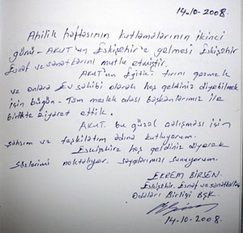 14-10-2008.
Ahilik haftasının kutlamalarının ikinci
günü - AKUT'un Eskişehir'e gelmesi Eskişehir
Esnaf ve sanatkarını mutlu etmiştir.
AKUT'un Eğitim tırını gezmek
ve onlara Ev sahibi olarak hoş geldiniz diyebilmek
için bugün - Tüm meslek odası başkanlarımız ile
birlikte ziyaret ettik.
AKUT. bu güzel çalışması için
şahsım ve teşkilatım adına kutluyorum.
Eskişehire hoş geldiniz diyerek
sözlerimi noktalıyor. saygılarımı sunuyorum.
EKREM BİRSEN.
Eskişehir Esnaf ve sanatkarlar
Odaları Birliği BŞK.
14-10-2008.